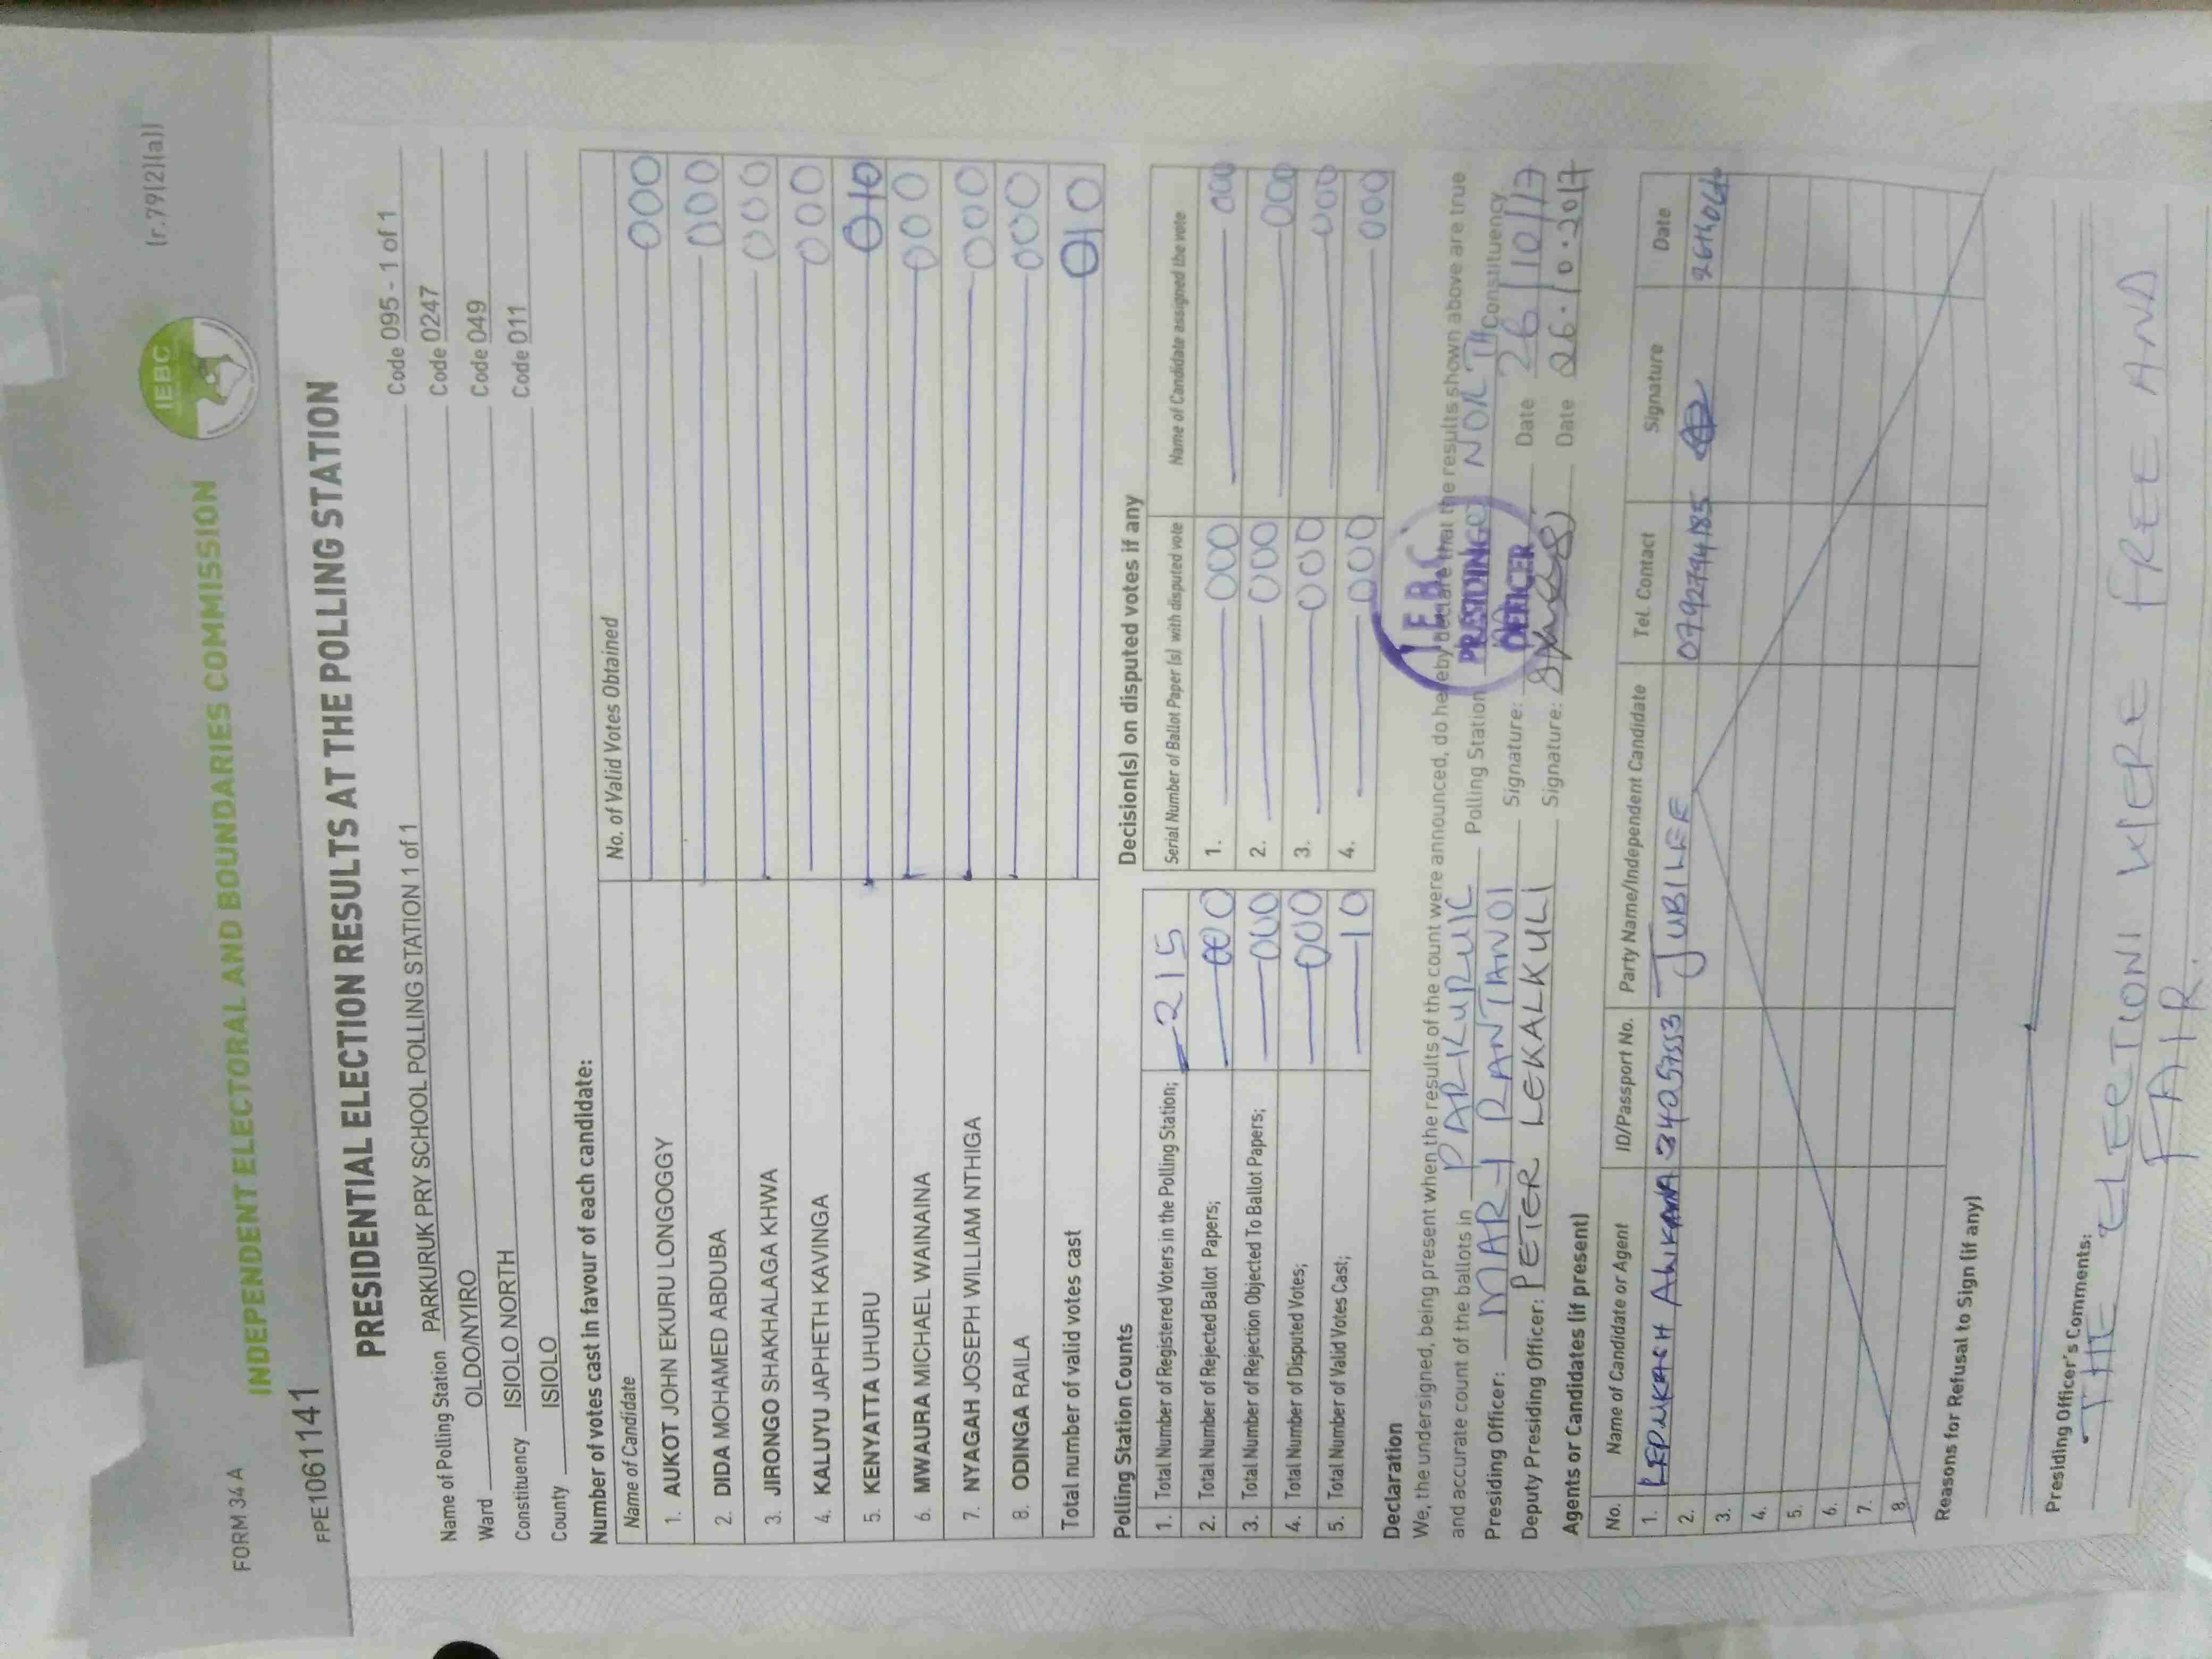 FORM 34 A
(r.79(2)(a))
IEBC
INDEPENDENT ELECTORAL AND BOUNDARIES COMMISSION
FPE1061141
PRESIDENTIAL ELECTION RESULTS AT THE POLLING STATION
Name of Polling Station PARKURUK PRY SCHOOL POLLING STATION 1 of 1 Code 095 - 1 of 1
Ward OLDO/NYIRO Code 0247
Constituency ISIOLO NORTH Code 049
County ISIOLO Code 011
Number of votes cast in favour of each candidate:
Name of Candidate No. of Valid Votes Obtained
1. AUKOT JOHN EKURU LONGOGGY 000
2. DIDA MOHAMED ABDUBA 000
3. JIRONGO SHAKHALAGA KHWA 000
4. KALUYU JAPHETH KAVINGA 000
5. KENYATTA UHURU 010
6. MWAURA MICHAEL WAINAINA 000
7. NYAGAH JOSEPH WILLIAM NTHIGA 000
8. ODINGA RAILA 000
Total number of valid votes cast 010
Polling Station Counts
1. Total Number of Registered Voters in the Polling Station; 215
2. Total Number of Rejected Ballot Papers; 000
3. Total Number of Rejection Objected To Ballot Papers; 000
4. Total Number of Disputed Votes; 000
5. Total Number of Valid Votes Cast; 10
Decision(s) on disputed votes if any
Serial Number of Ballot Paper (s) with disputed vote Name of Candidate assigned the vote
1. 000 000
2. 000 000
3. 000 000
4. 000 000
Declaration
We, the undersigned, being present when the results of the count were announced, do hereby declare that the results shown above are true
and accurate count of the ballots in PARKURUK Polling Station NORTH Constituency
Presiding Officer: MARY RANTANOI Signature: Date 26/10/17
Deputy Presiding Officer: PETER LEKALKULI Signature: Date 26.10.2017
IEBC
PRESIDING
OFFICER
Agents or Candidates (if present)
No. Name of Candidate or Agent ID/Passport No. Party Name/Independent Candidate Tel. Contact Signature Date
1. JUBILEE 0792794185
2.
3.
4.
5.
6.
7.
8.
Reasons for Refusal to Sign (if any)
Presiding Officer's Comments:
THE ELECTION WERE FREE AND
FAIR.